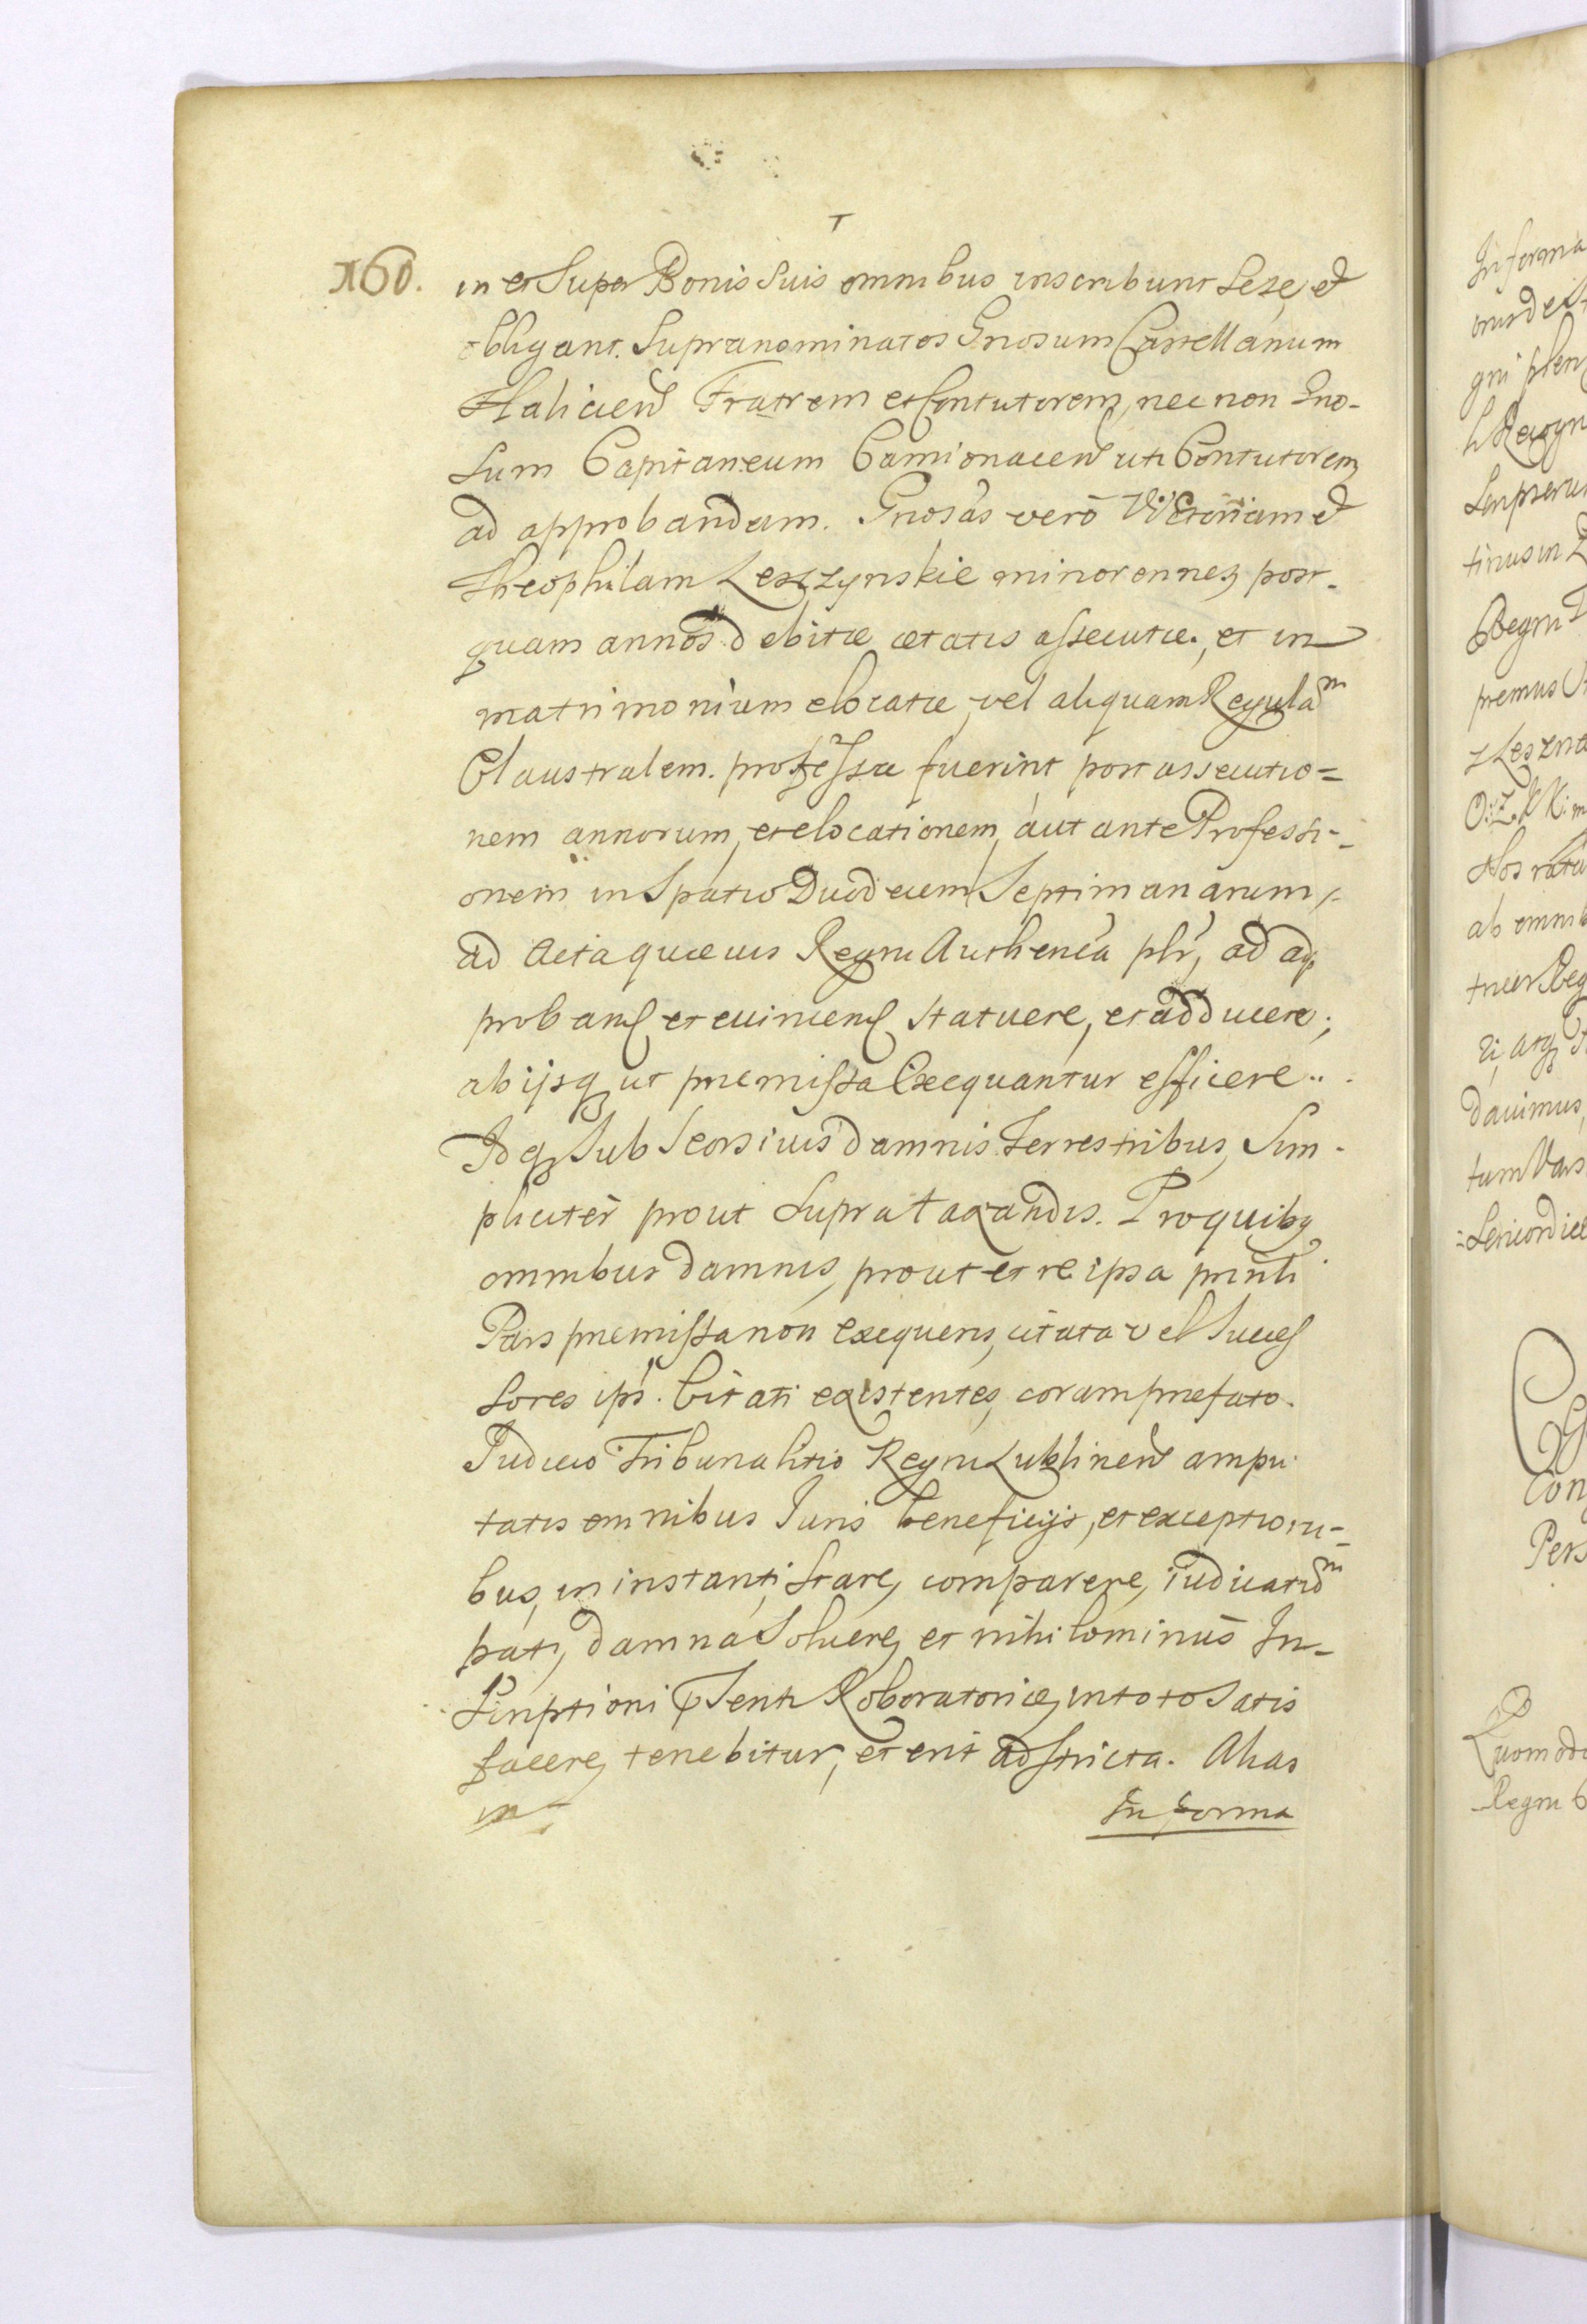 160. in et Super Bonis Suis omnibus inscribunt Sese, et
obligant. Supranominatos Gnosum Castellanum
Haliciens Fratrem et Contutorem, nec non Gno-
sum Capitaneum Camionacens uti Contutorem
ad approbandum. Gnosas verò Victoriam et
Theophilam Leszzynskie minorennes, post-
quam annos debitæ ætatis assecutæ, et in
matrimonium elocatæ, vel aliquam Regulam
Claustralem. professæ fuerint, post assecutio=
nem annorum, et elocationem, aut ante Professi-
onem in Spatio Duodecem Septimanarum,
ad Acta quæuis Regni Authenca pltr, ad ap
probans et euincens statuere, et adducere;
ab ijsq ut præmissa Exequantur efficere..
Idq Sub Seorsiuis damnis terrestribus, Sim-
pliciter prout Supra taxandis. Pro quibq
omnibus damnis, prout et re ipsa prinli
Pars præmissa non exequens, citata vel Succes
sores ips. Citati existentes, coram præfato.
Judicio Tribunalitio Regni Lublinens ampu
tatis omnibus Juris beneficijs, et exceptioni-
bus, in instanti, Stare, comparere, iudicatum
pati, damna Soluere, et nihilominus In-
scriptioni pSenti Roboratoriæ, in toto Satis
facere, tenebitur, et erit adstricta. Alias
in forma